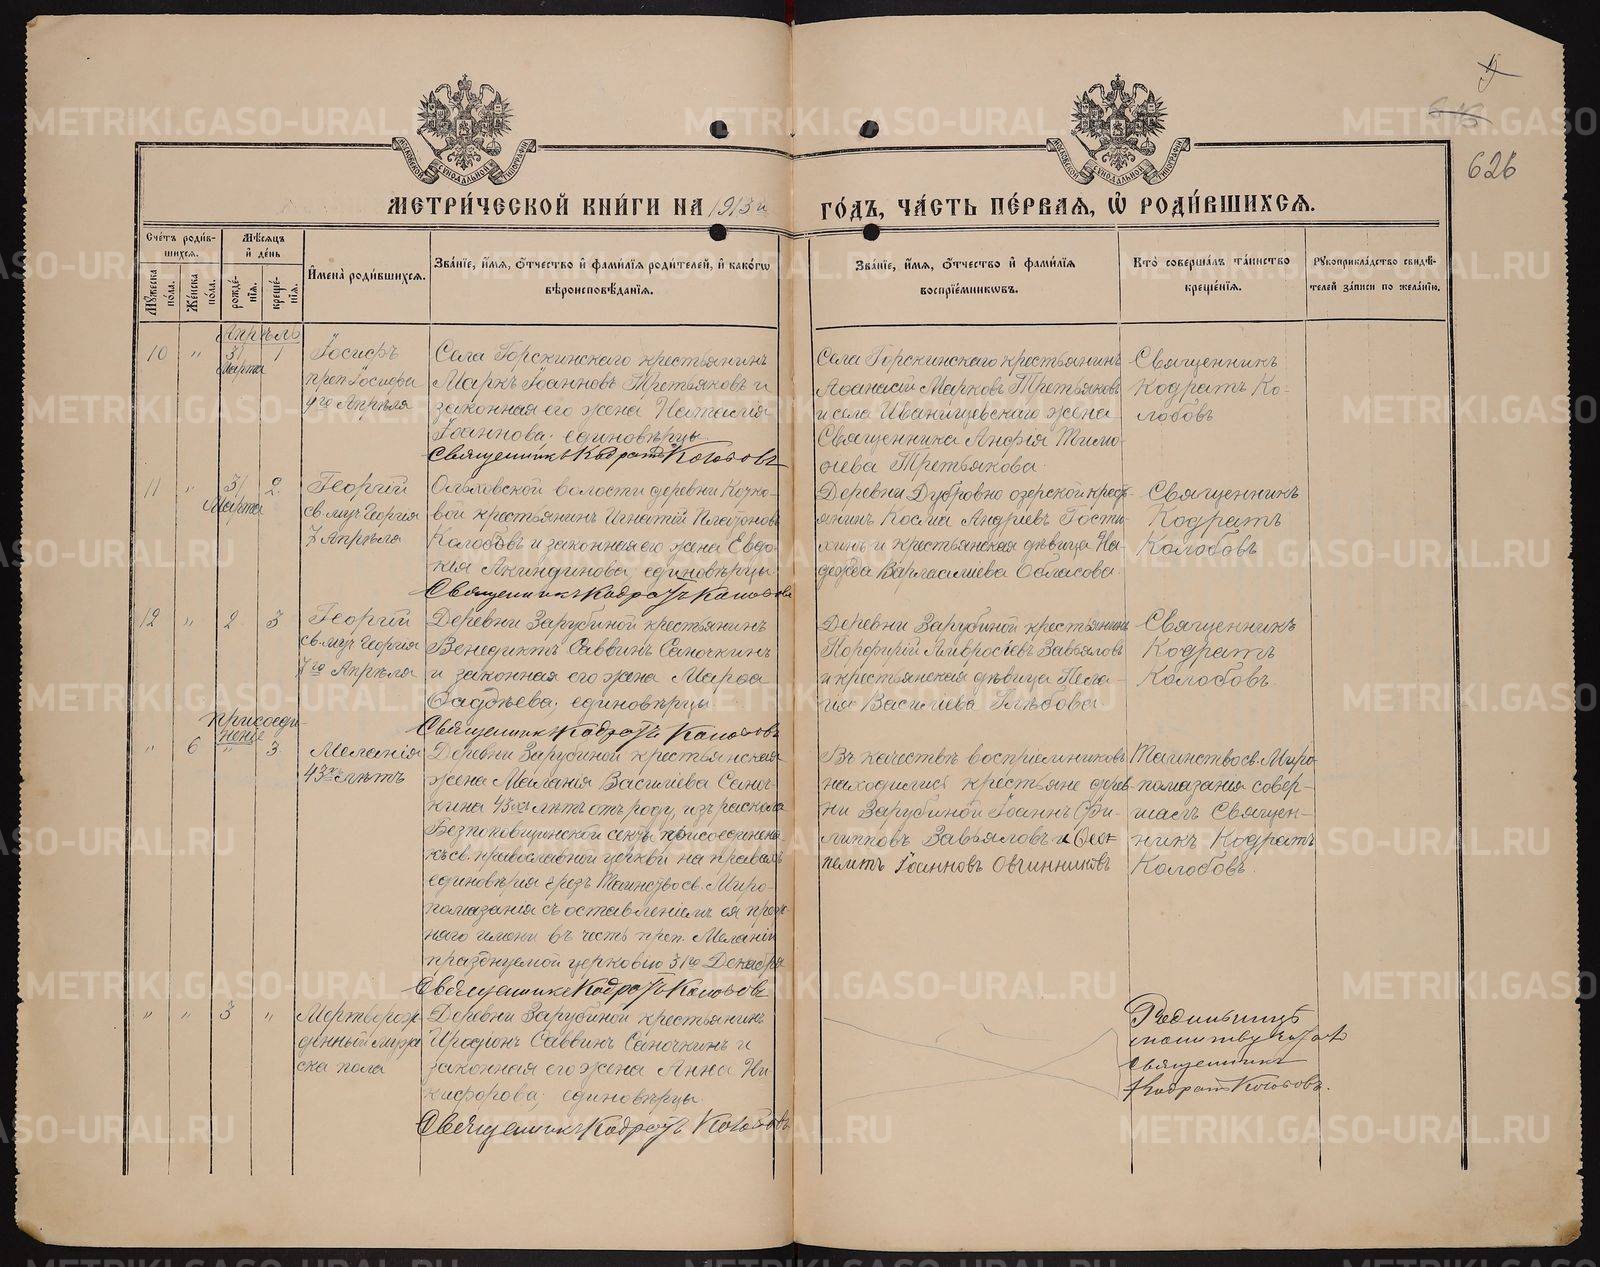 626
МЕТРИ́ЧЕСКОЙ КНИ́ГИ НА 1913й ГО́ДЪ, ЧА́СТЬ ПЕ́РВАЯ, Ѡ РОДИ́ВШИХСЯ.
Сче́тъ роди́в-
шихся.
Мѣ́сяцъ
и̂ де́нь
Му́жеска по́ла.
Же́нска по́ла.
рожде́-
нїя.
креще́-
нїя.
И̂мена̀ роди́вшихся.
Зва́нїе, и́мя, о́тчество и̂ фами́лїя роди́телей, и̂ како́гѡ
вѣроисповѣ́данїя.
Зва́нїе, и́мя, о́тчество и̂ фами́лїя
воспрїе́мниковъ.
Кто̀ соверша́лъ та́инство
креще́нїя.
Рукоприкла́дство свидѣ́-
телей за́писи по жела́нїю.
Апрѣль
10 " 31 1
Марта
Іосифъ
преп Іосифа
4го Апрѣля
Села Горскинскаго крестьянинъ
Маркъ Іоанновъ Третьяковъ и
законная его жена Наталія
Іоаннова; единовѣрцы
Священникъ Кодратъ Колобовъ
Села Горскинскаго крестьянинъ
Аѳанасій Марковъ Третьяковъ
и села Иванищевскаго жена
Священника Анфія Тимо-
ѳиева Третьякова.
Священникъ
Кодратъ Ко-
лобовъ
11 " 31 2
Марта
Георгій
св. муч Георгія
7 Апрѣля
Ольховской волости деревни Кочко-
вой крестьянинъ Игнатій Платоновъ
Колобовъ и законная его жена Евдо-
кія Акиндинова, единовѣрцы
Священникъ Кодратъ Колобовъ
Деревни Дубровно озерской крест-
янинъ Косма Андріевъ Гости-
хинъ и крестьянская дѣвица На-
дежда Варласиліева Обласова
Священникъ
Кодратъ
Колобовъ
12 " 2 3
Георгій
св. муч Георгія
7го Апрѣля
Деревни Зарубиной крестьянинъ
Венедиктъ Саввинъ Саночкинъ
и законная его жена Марѳа
Фаддѣева; единовѣрцы
Священникъ Кодратъ Колобовъ
Деревни Зарубиной крестьянинъ
Порфирій Амвросіевъ Завьяловъ
и крестьянская дѣвица Пела-
гія Василіева Глѣбова.
Священникъ
Кодратъ
Колобовъ.
Присоеди-
неніе
" 6 " 3
Меланія
43хъ лѣтъ
Деревни Зарубиной крестьянская
жена Меланія Василіева Саноч-
кина 43хъ лѣтъ отъ роду, изъ раскола
Безпоповщинской секты присоединена
къ св. православной церкви на правахъ
единовѣрія чрезъ Таинство св. Миро-
помазанія съ оставленіемъ ея преж-
няго имени въ честь преп. Меланіи
празднуемой церковью 31го Декабря
Священникъ Кодратъ Колобовъ
Въ качествѣ воспріемниковъ
находились крестьяне дерев-
ни Зарубиной Іоаннъ Фи-
липповъ Завьяловъ и
Іоанновъ Овчинниковъ
Таинство св. Миро-
помазанія совер-
шалъ Священ-
никъ Кодратъ
Колобовъ.
" " 3 "
Мертворож
денный муже
ска пола
Деревни Зарубиной крестьянинъ
Иродіонъ Саввинъ Саночкинъ и
законная его жена Анна Ни-
кифорова; единовѣрцы.
Священникъ Кодратъ Колобовъ
Родильницѣ
молитву
Священникъ
Кодратъ Колобовъ.
METRIKI.GASO-URAL.RU